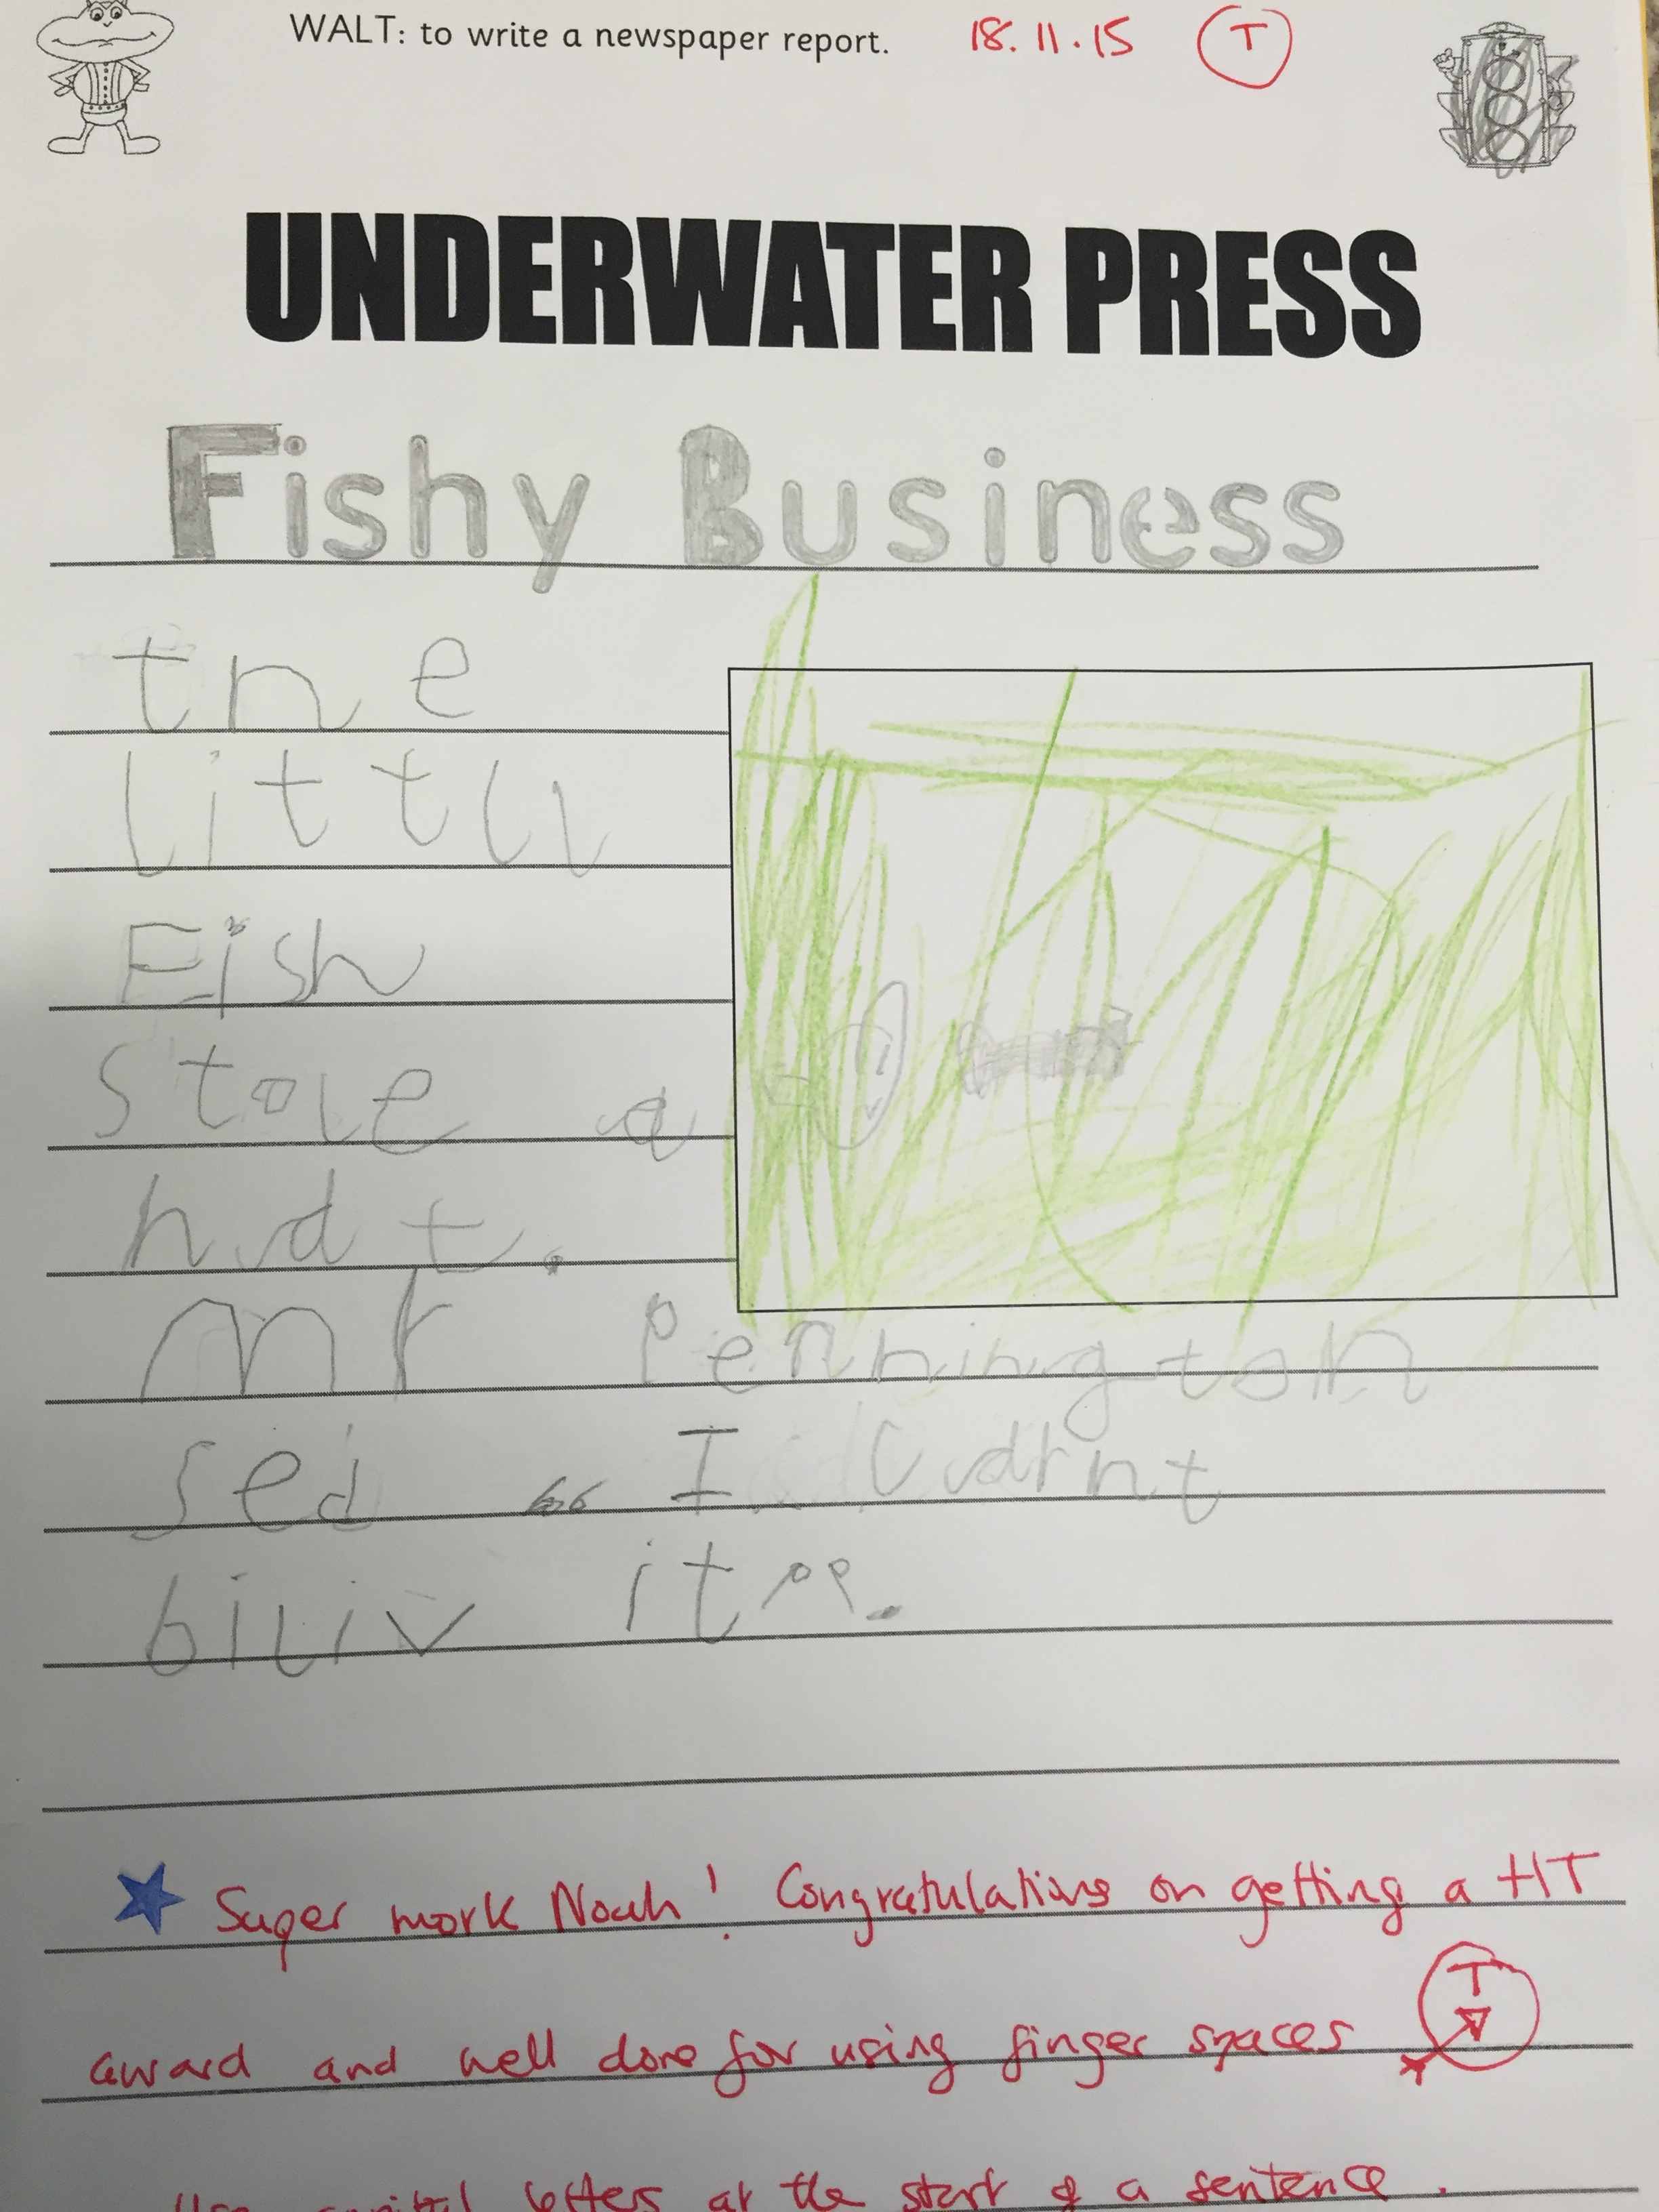 WALT: to write a newspaper report. 18.11.15 T
UNDERWATER PRESS
Fishy Business
the
littll
Fish
stole a
hat.
mr Pennington
sed "I carnt
biliv it".
Super work Noah! Congratulations on getting a HT
award and well done for using finger spaces T
Use capital letters at the start of a sentence.